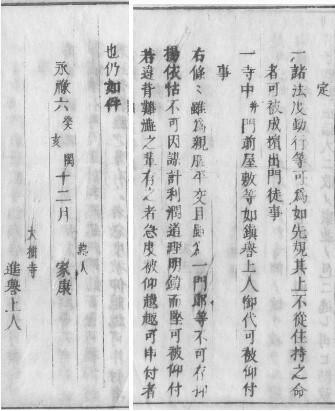 定
一諸法度勤行等可為如先規其上不従住持之命
者可被成擯出門徒事
一寺中并門前屋敷等如鎮誉上人御代可被仰付
事
右條〻雖為親属平交且
一門郎等不可存
揚依怙不可因
計利潤道理明鏡而堅可被仰付
若違背難渋之輩有之者急度被仰越越可申付者
也仍如件
永祿六癸亥閏十二月
家康
大樹寺
進誉上人